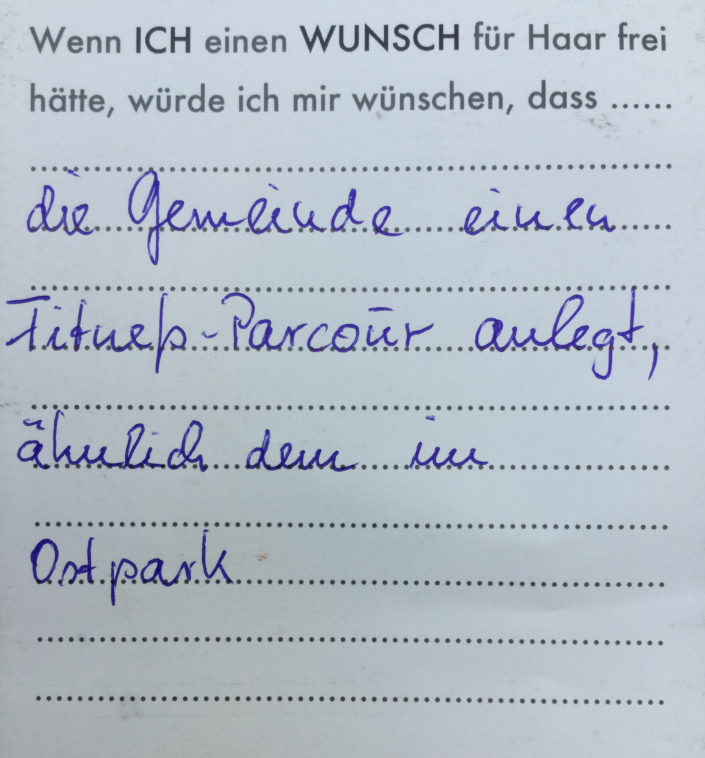 Wenn ICH einen WUNSCH für Haar frei
hätte, würde ich mir wünschen, dass ......
die Gemeinde einen
Fitneß-Parcour anlegt,
ähnlich dem im
Ostpark